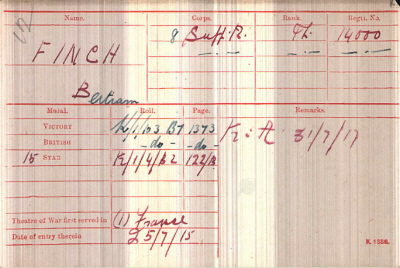 Name. Corps. Rank. Regtl. No.
FINCH 8 Suff. R. Pte. 14000
Bertram
Medal. Roll. Page. Remarks.
VICTORY K/1/103 B7 1373 K. in A. 31/7/17
BRITISH -do- -do-
15 STAR K/1/4/B2 122/B
Theatre of War first served in (1) France
Date of entry therein 25/7/15
K. 1380.